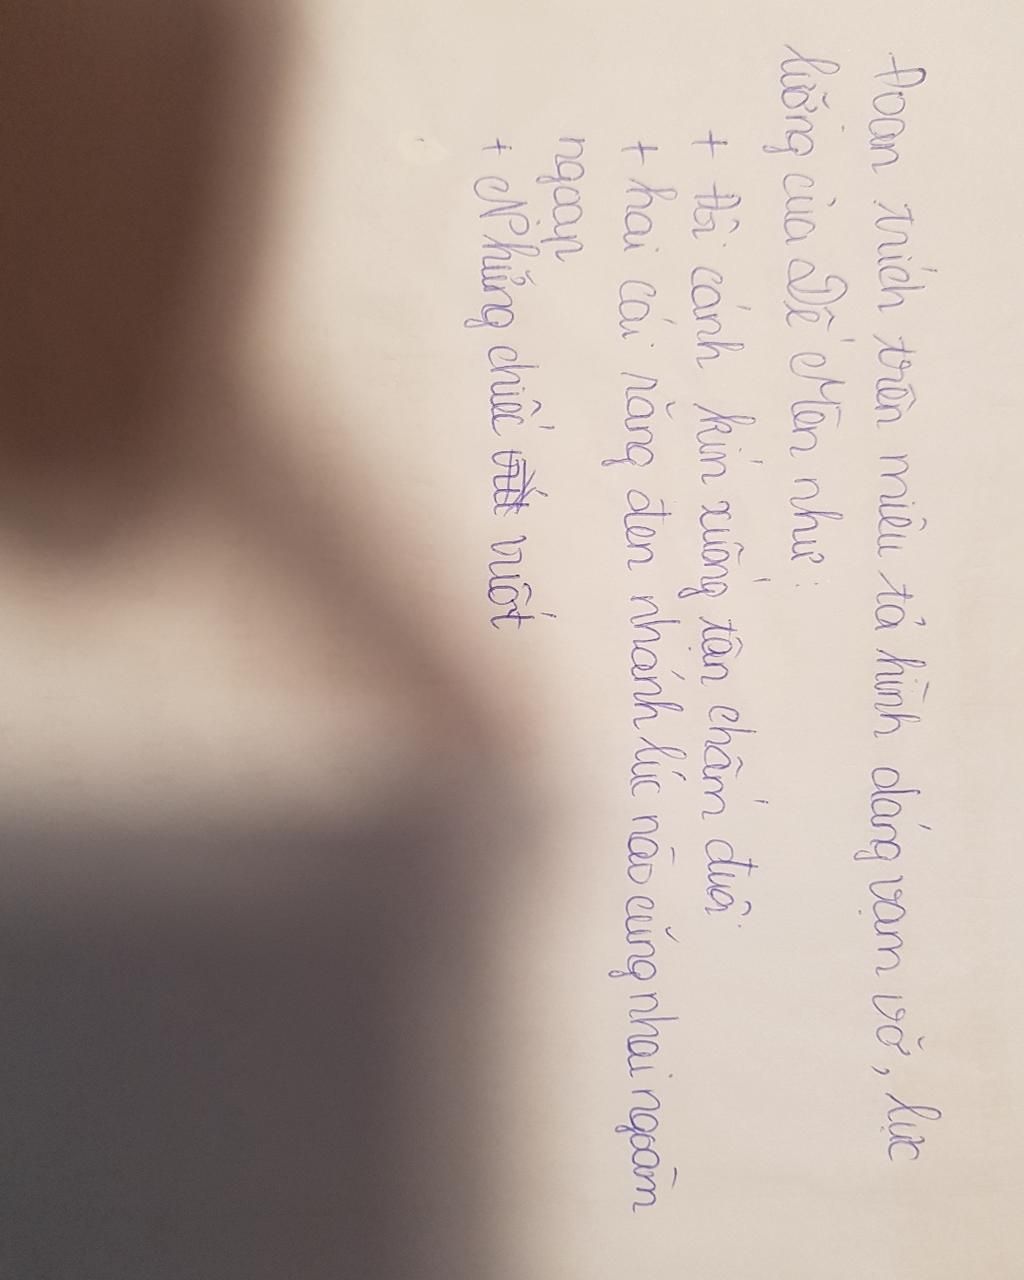 Đoạn trích trên miêu tả hình dáng vạm vỡ, lực
lưỡng của Dế Mèn như:
+ Đôi cánh kín xuống tận chấm đuôi
+ hai cái răng đen nhánh lúc nào cũng nhai ngoàm
ngoạp
+ Những chiếc vuốt